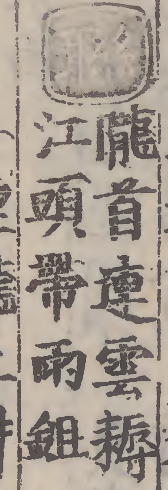 隴首連雲耨
江頭帶雨鉏